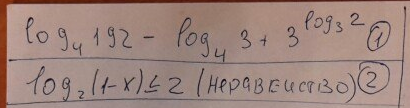 log₄192 - log₄3 + 3^log₃2 ①
log₂(1-x) ≤ 2 (неравенство) ②